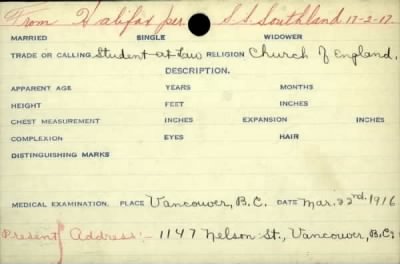 From Halifax per S.S. Southland 17-2-17.
MARRIED SINGLE WIDOWER
TRADE OR CALLING Student-at-Law RELIGION Church of England.
DESCRIPTION.
APPARENT AGE YEARS MONTHS
HEIGHT FEET INCHES
CHEST MEASUREMENT INCHES EXPANSION INCHES
COMPLEXION EYES HAIR
DISTINGUISHING MARKS
MEDICAL EXAMINATION. PLACE Vancouver, B.C. DATE Mar. 22nd. 1916
Present Address:- 1147 Nelson St., Vancouver, B.C.